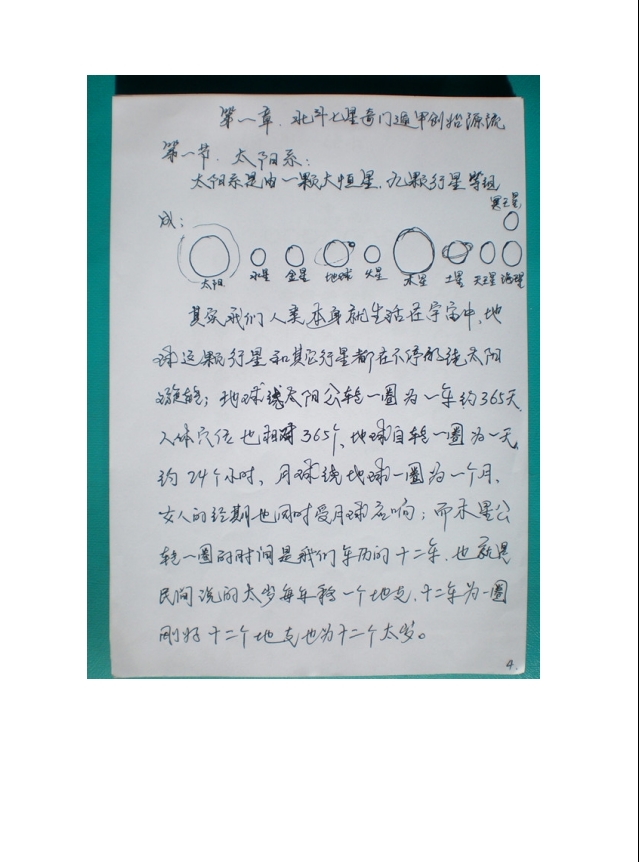 第一章、北斗七星奇门遁甲创始源流
第一节、太阳系：
太阳系是由一颗大恒星，九颗行星等组
冥王星
成：
太阳 水星 金星 地球 火星 木星 土星 天王星 海王星
其实我们人类本身就生活在宇宙中、地
球这颗行星和其它行星都在不停的绕太阳
旋转；地球绕太阳公转一圈为一年约365天，
人体穴位也相对365个、地球自转一圈为一天，
约24个小时，月球绕地球一圈为一个月、
女人的经期也同时受月球影响；而木星公
转一圈的时间是我们年历的十二年、也就是
民间说的太岁每年移一个地支、十二年为一圈
刚好十二个地支也为十二个太岁。
4.